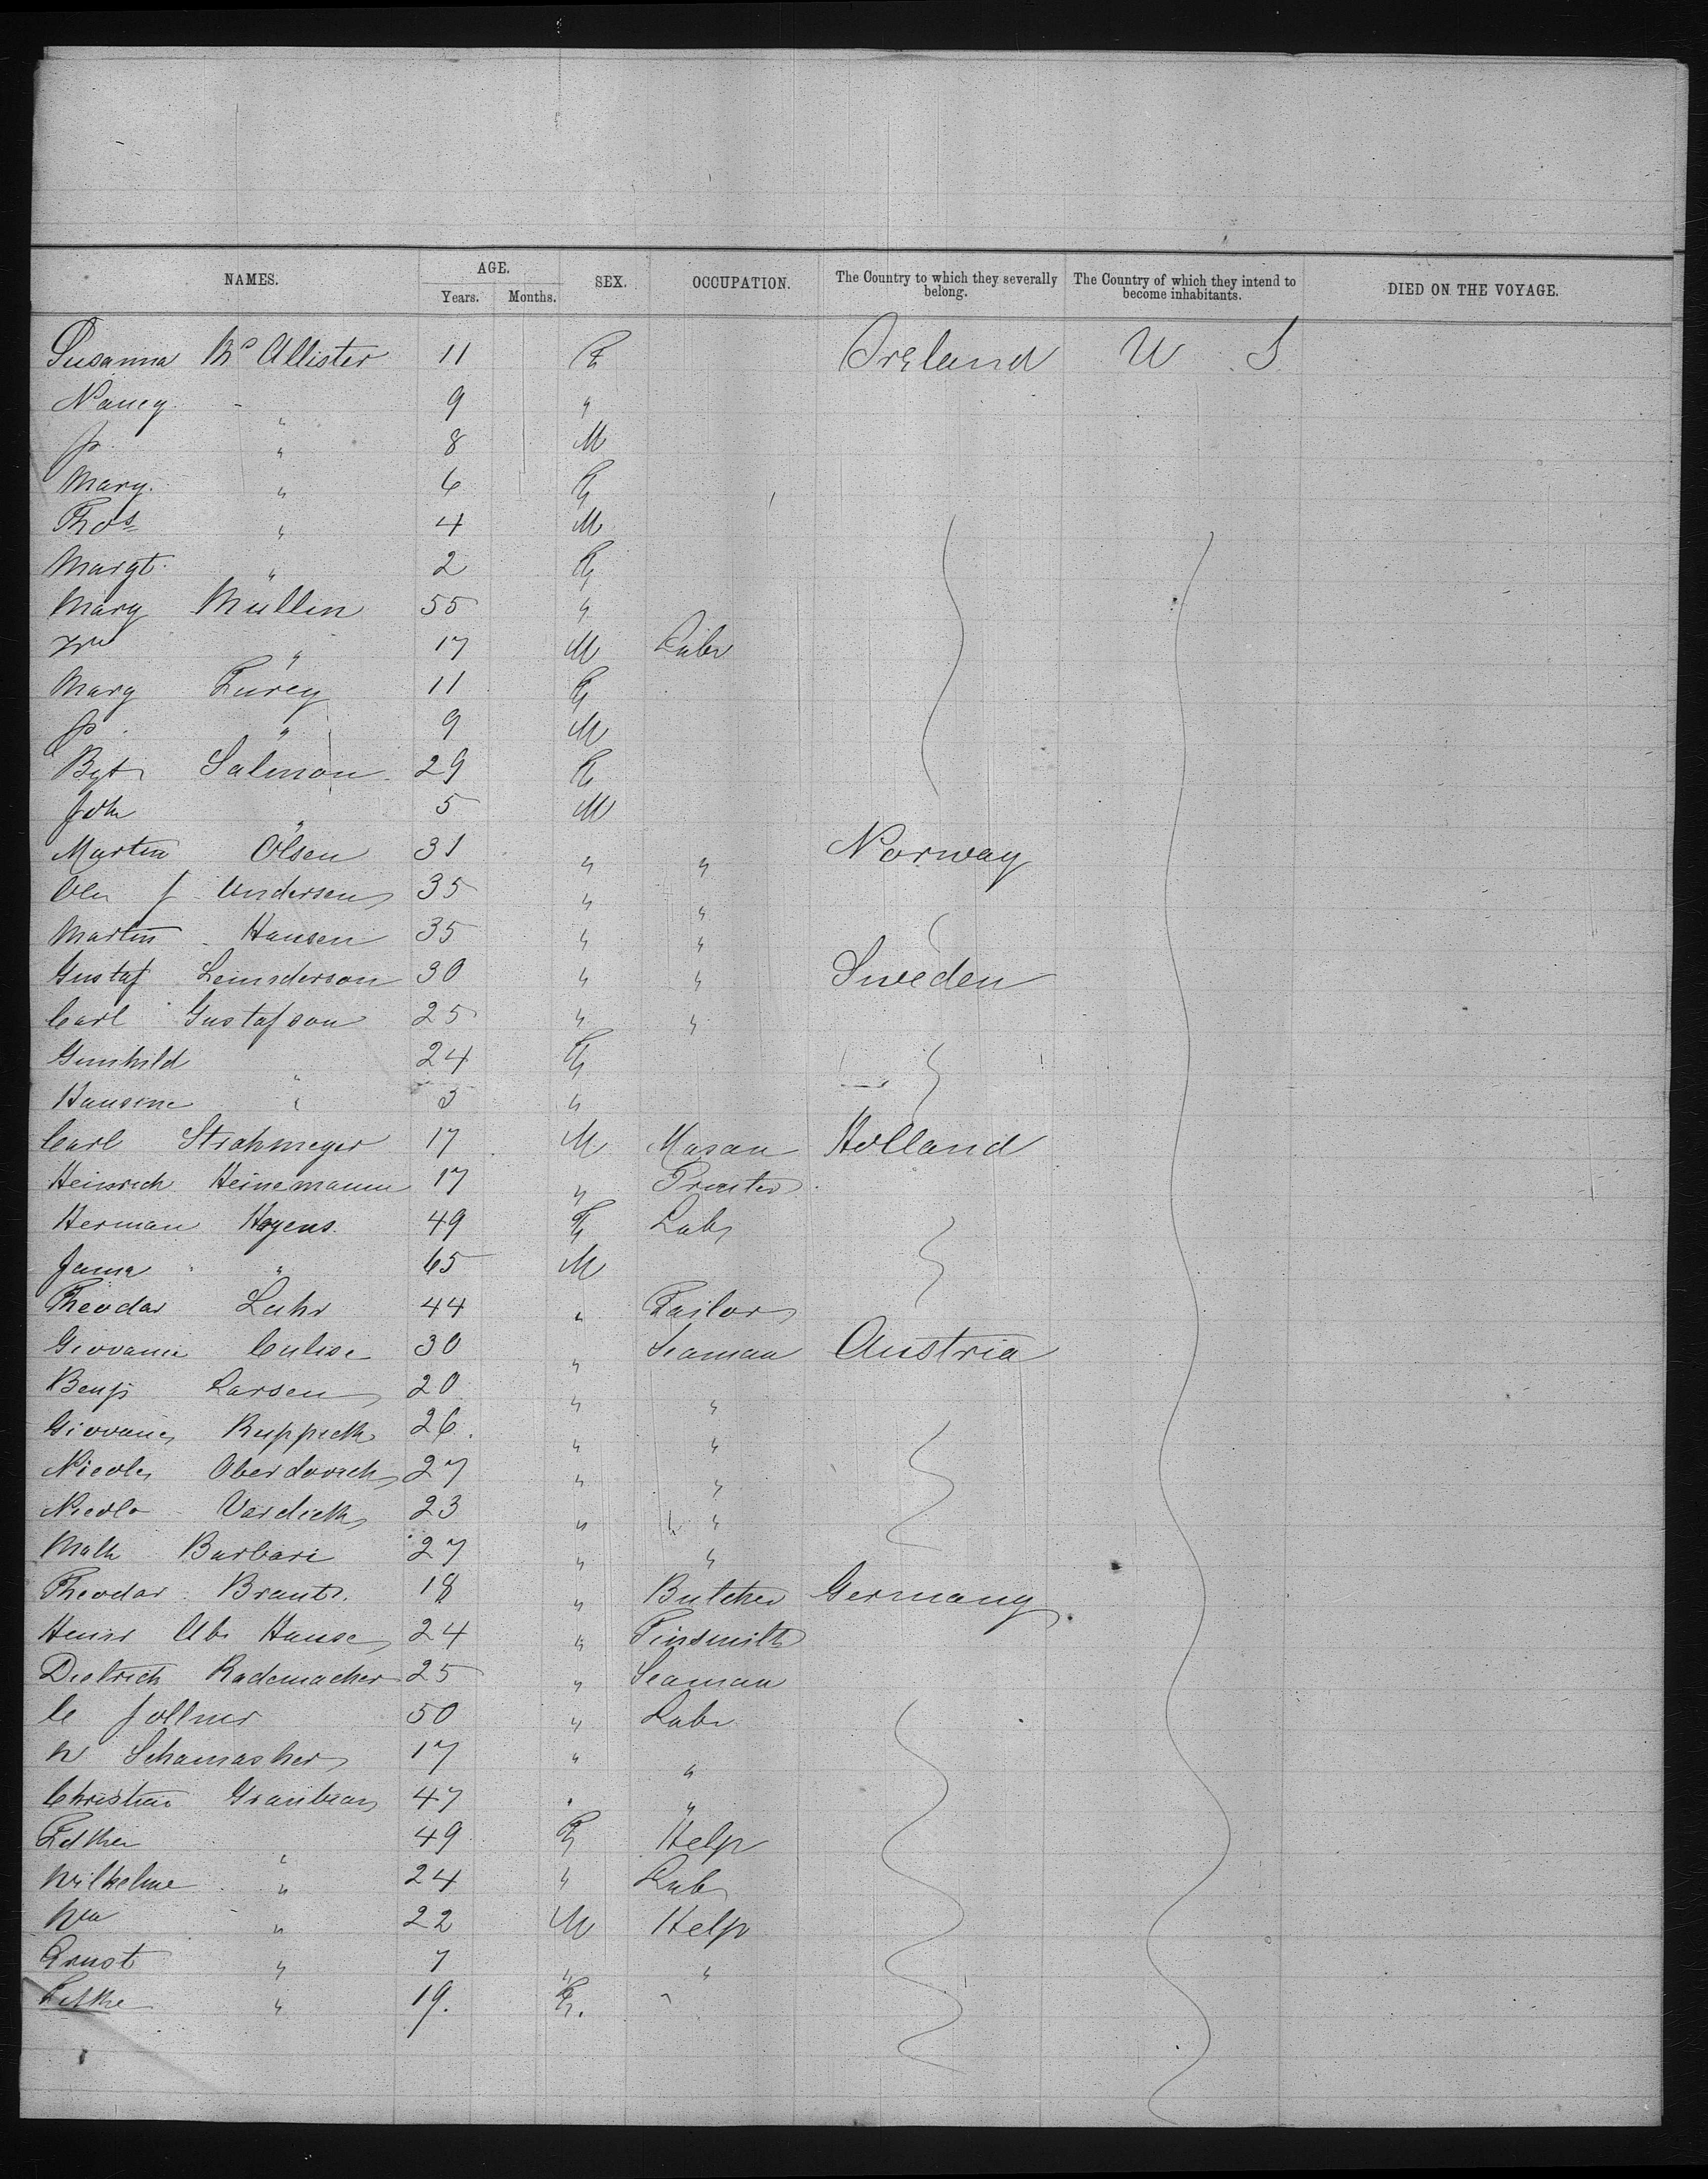 NAMES. AGE. Years. Months. SEX. OCCUPATION. The Country to which they severally belong. The Country of which they intend to become inhabitants. DIED ON THE VOYAGE.
Susanna McAllister 11 F Ireland U S
Nancy " 9 "
Jo " 8 M
Mary " 6 F
Thos " 4 M
Margt " 2 F
Mary Mullin 55 "
Wm " 17 M Labr
Mary Furey 11 F
Jo " 9 M
Bgt Salmon 29 F
Joh " 5 M
Martin Olsen 31 " " Norway
Ole J Andersen 35 " "
Martin Hansen 35 " "
Gustaf 30 " " Sweden
Carl Gustafson 25 " "
Gunhild " 24 F
Hansine " 3 "
Carl Strohmeyer 17 M Mason Holland
Heinrich Heinemann 17 " Printer
Herman Hoyens 49 F Lab
" 65 M
Theodor Luhr 44 " Tailor
Giovanni 30 " Seaman Austria
Benj Larsen 20 " "
Giovani 26 " "
Nicolo 27 " "
Nicolo 23 " "
Math Barbari 27 " "
Theodor Brant 18 " Butcher Germany
24 " Tinsmith
Dietrich Rademacher 25 " Seaman
C 50 " Labr
W 17 " "
Christian 47 " "
49 F Help
Wilhelme " 24 " Lab
Wm " 22 M Help
Ernst " 7 " "
" 19. F. "